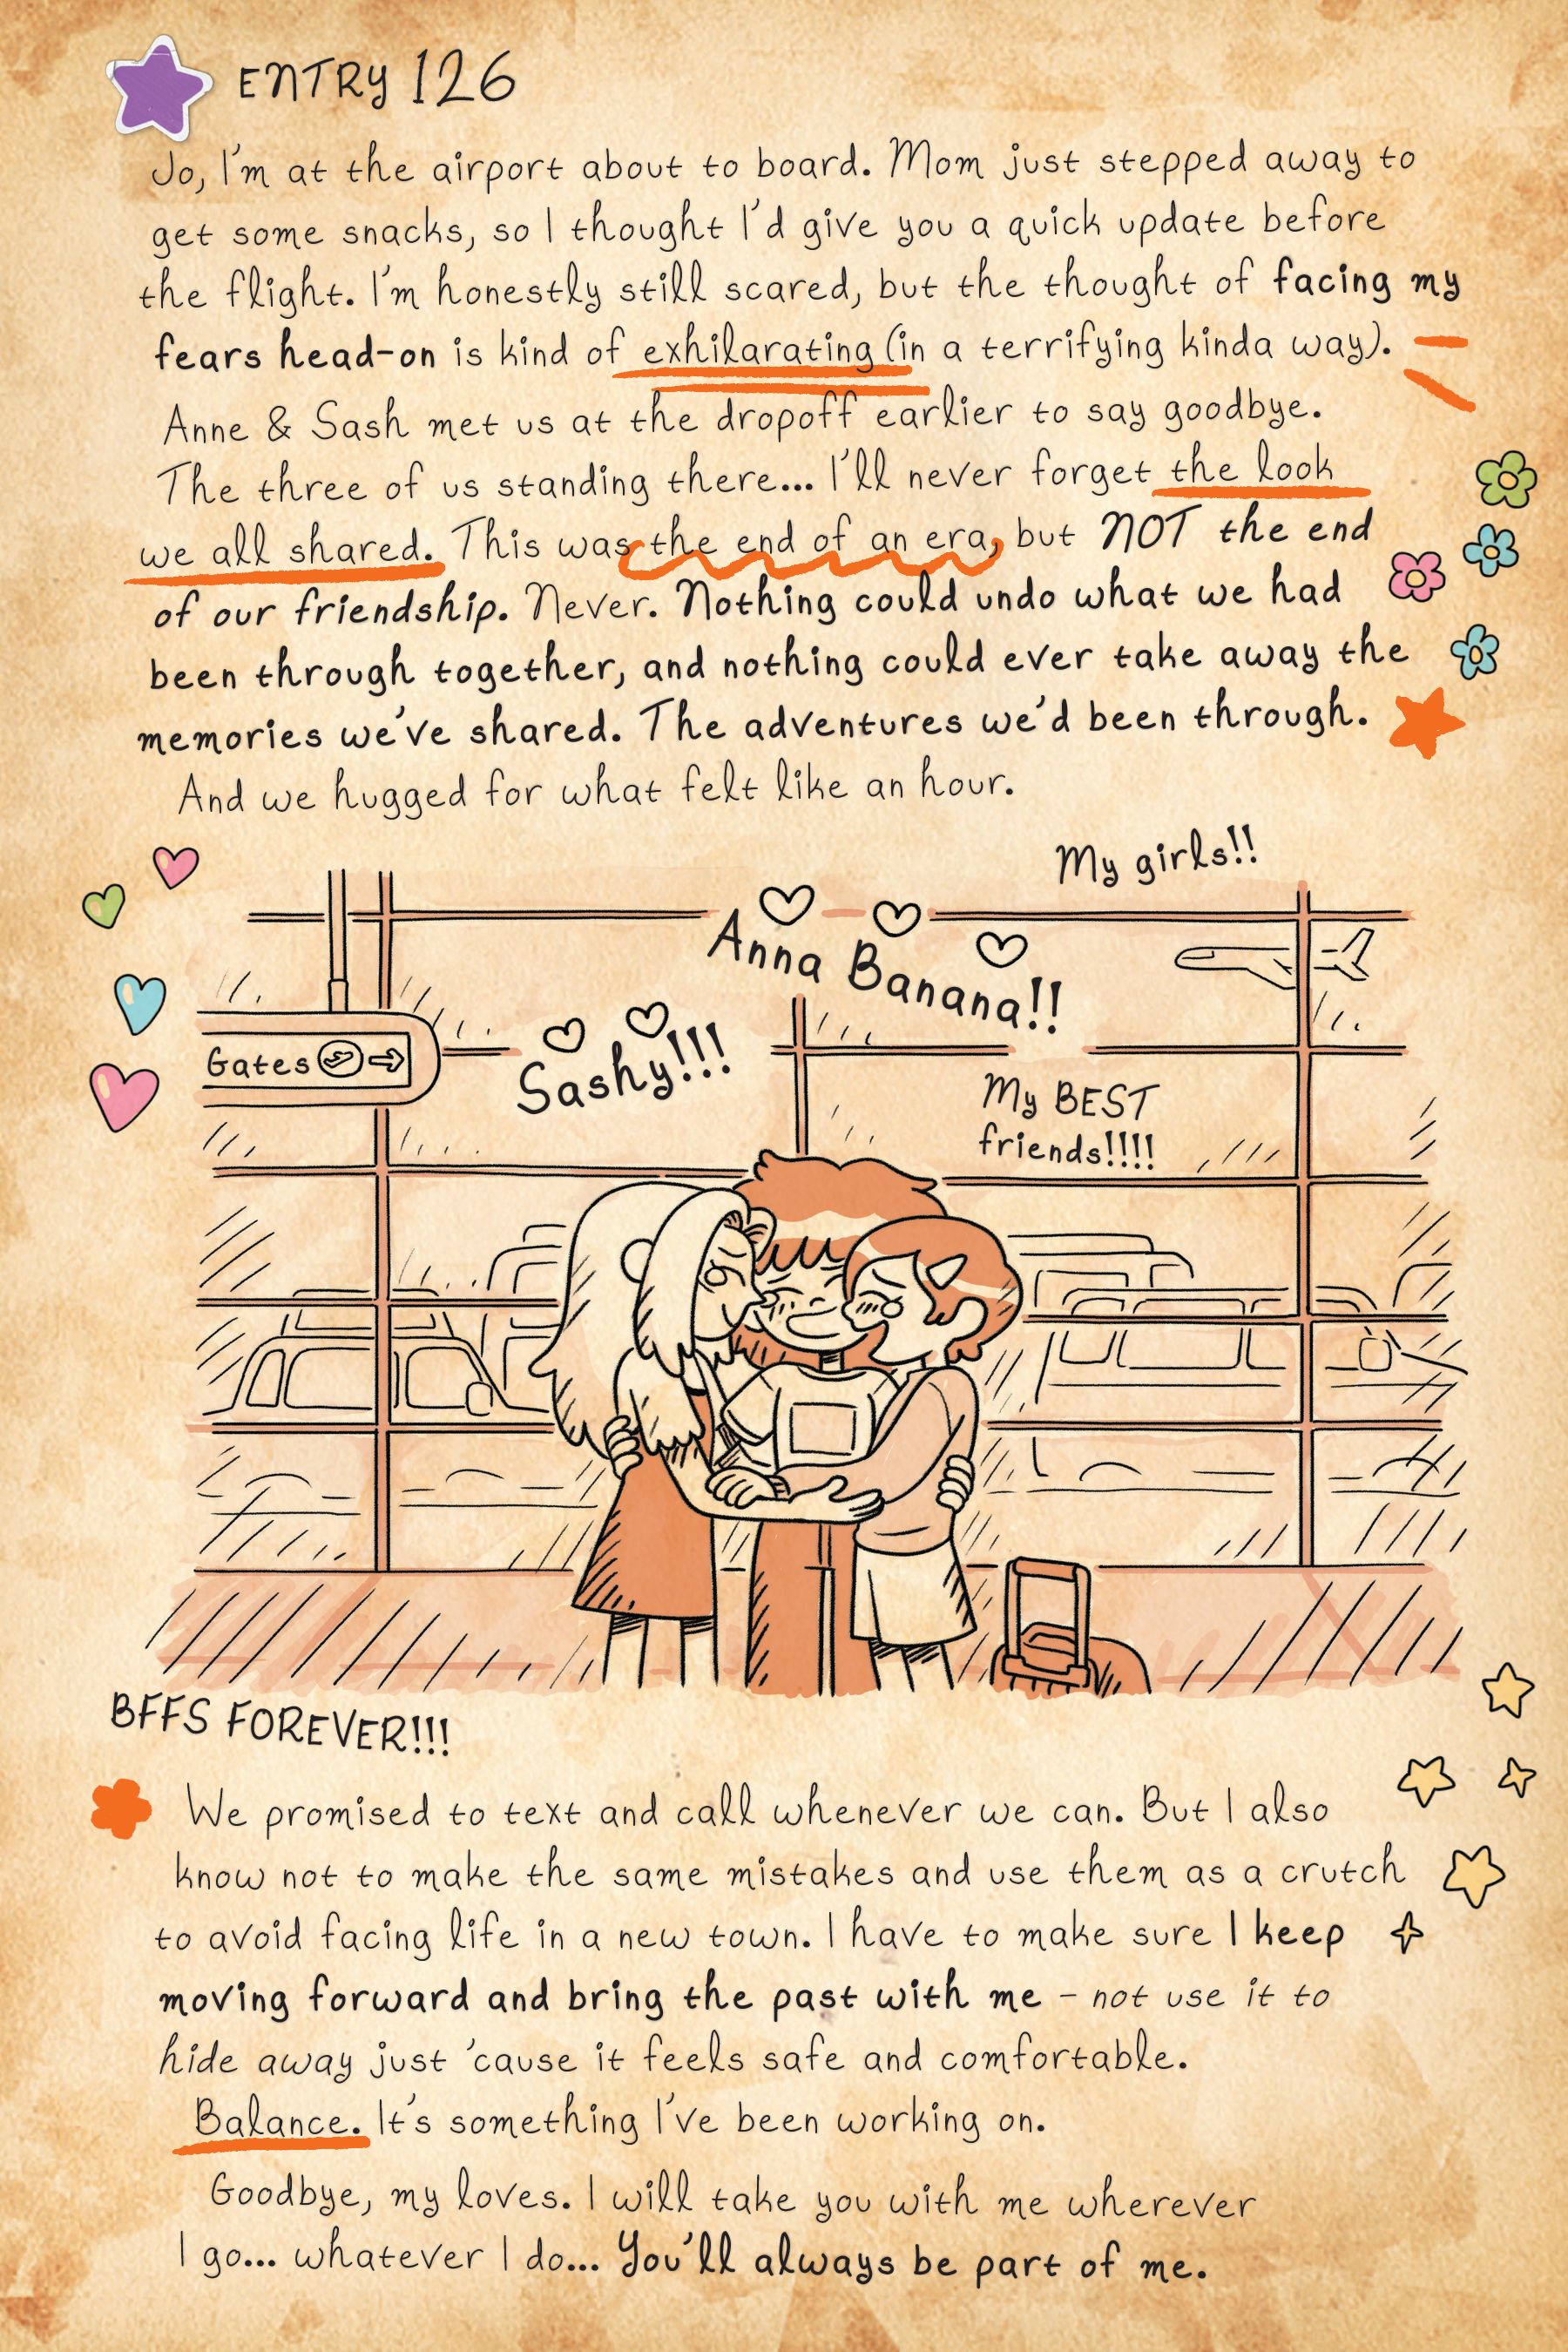 ENTRY 126
Jo, I'm at the airport about to board. Mom just stepped away to
get some snacks, so I thought I'd give you a quick update before
the flight. I'm honestly still scared, but the thought of facing my
fears head-on is kind of exhilarating (in a terrifying kinda way).
Anne & Sash met us at the dropoff earlier to say goodbye.
The three of us standing there... I'll never forget the look
we all shared. This was the end of an era, but NOT the end
of our friendship. Never. Nothing could undo what we had
been through together, and nothing could ever take away the
memories we've shared. The adventures we'd been through.
And we hugged for what felt like an hour.
My girls!!
Anna Banana!!
Sashy!!!
Gates
My BEST
friends!!!!
BFFS FOREVER!!!
We promised to text and call whenever we can. But I also
know not to make the same mistakes and use them as a crutch
to avoid facing life in a new town. I have to make sure I keep
moving forward and bring the past with me – not use it to
hide away just 'cause it feels safe and comfortable.
Balance. It's something I've been working on.
Goodbye, my loves. I will take you with me wherever
I go... whatever I do... You'll always be part of me.